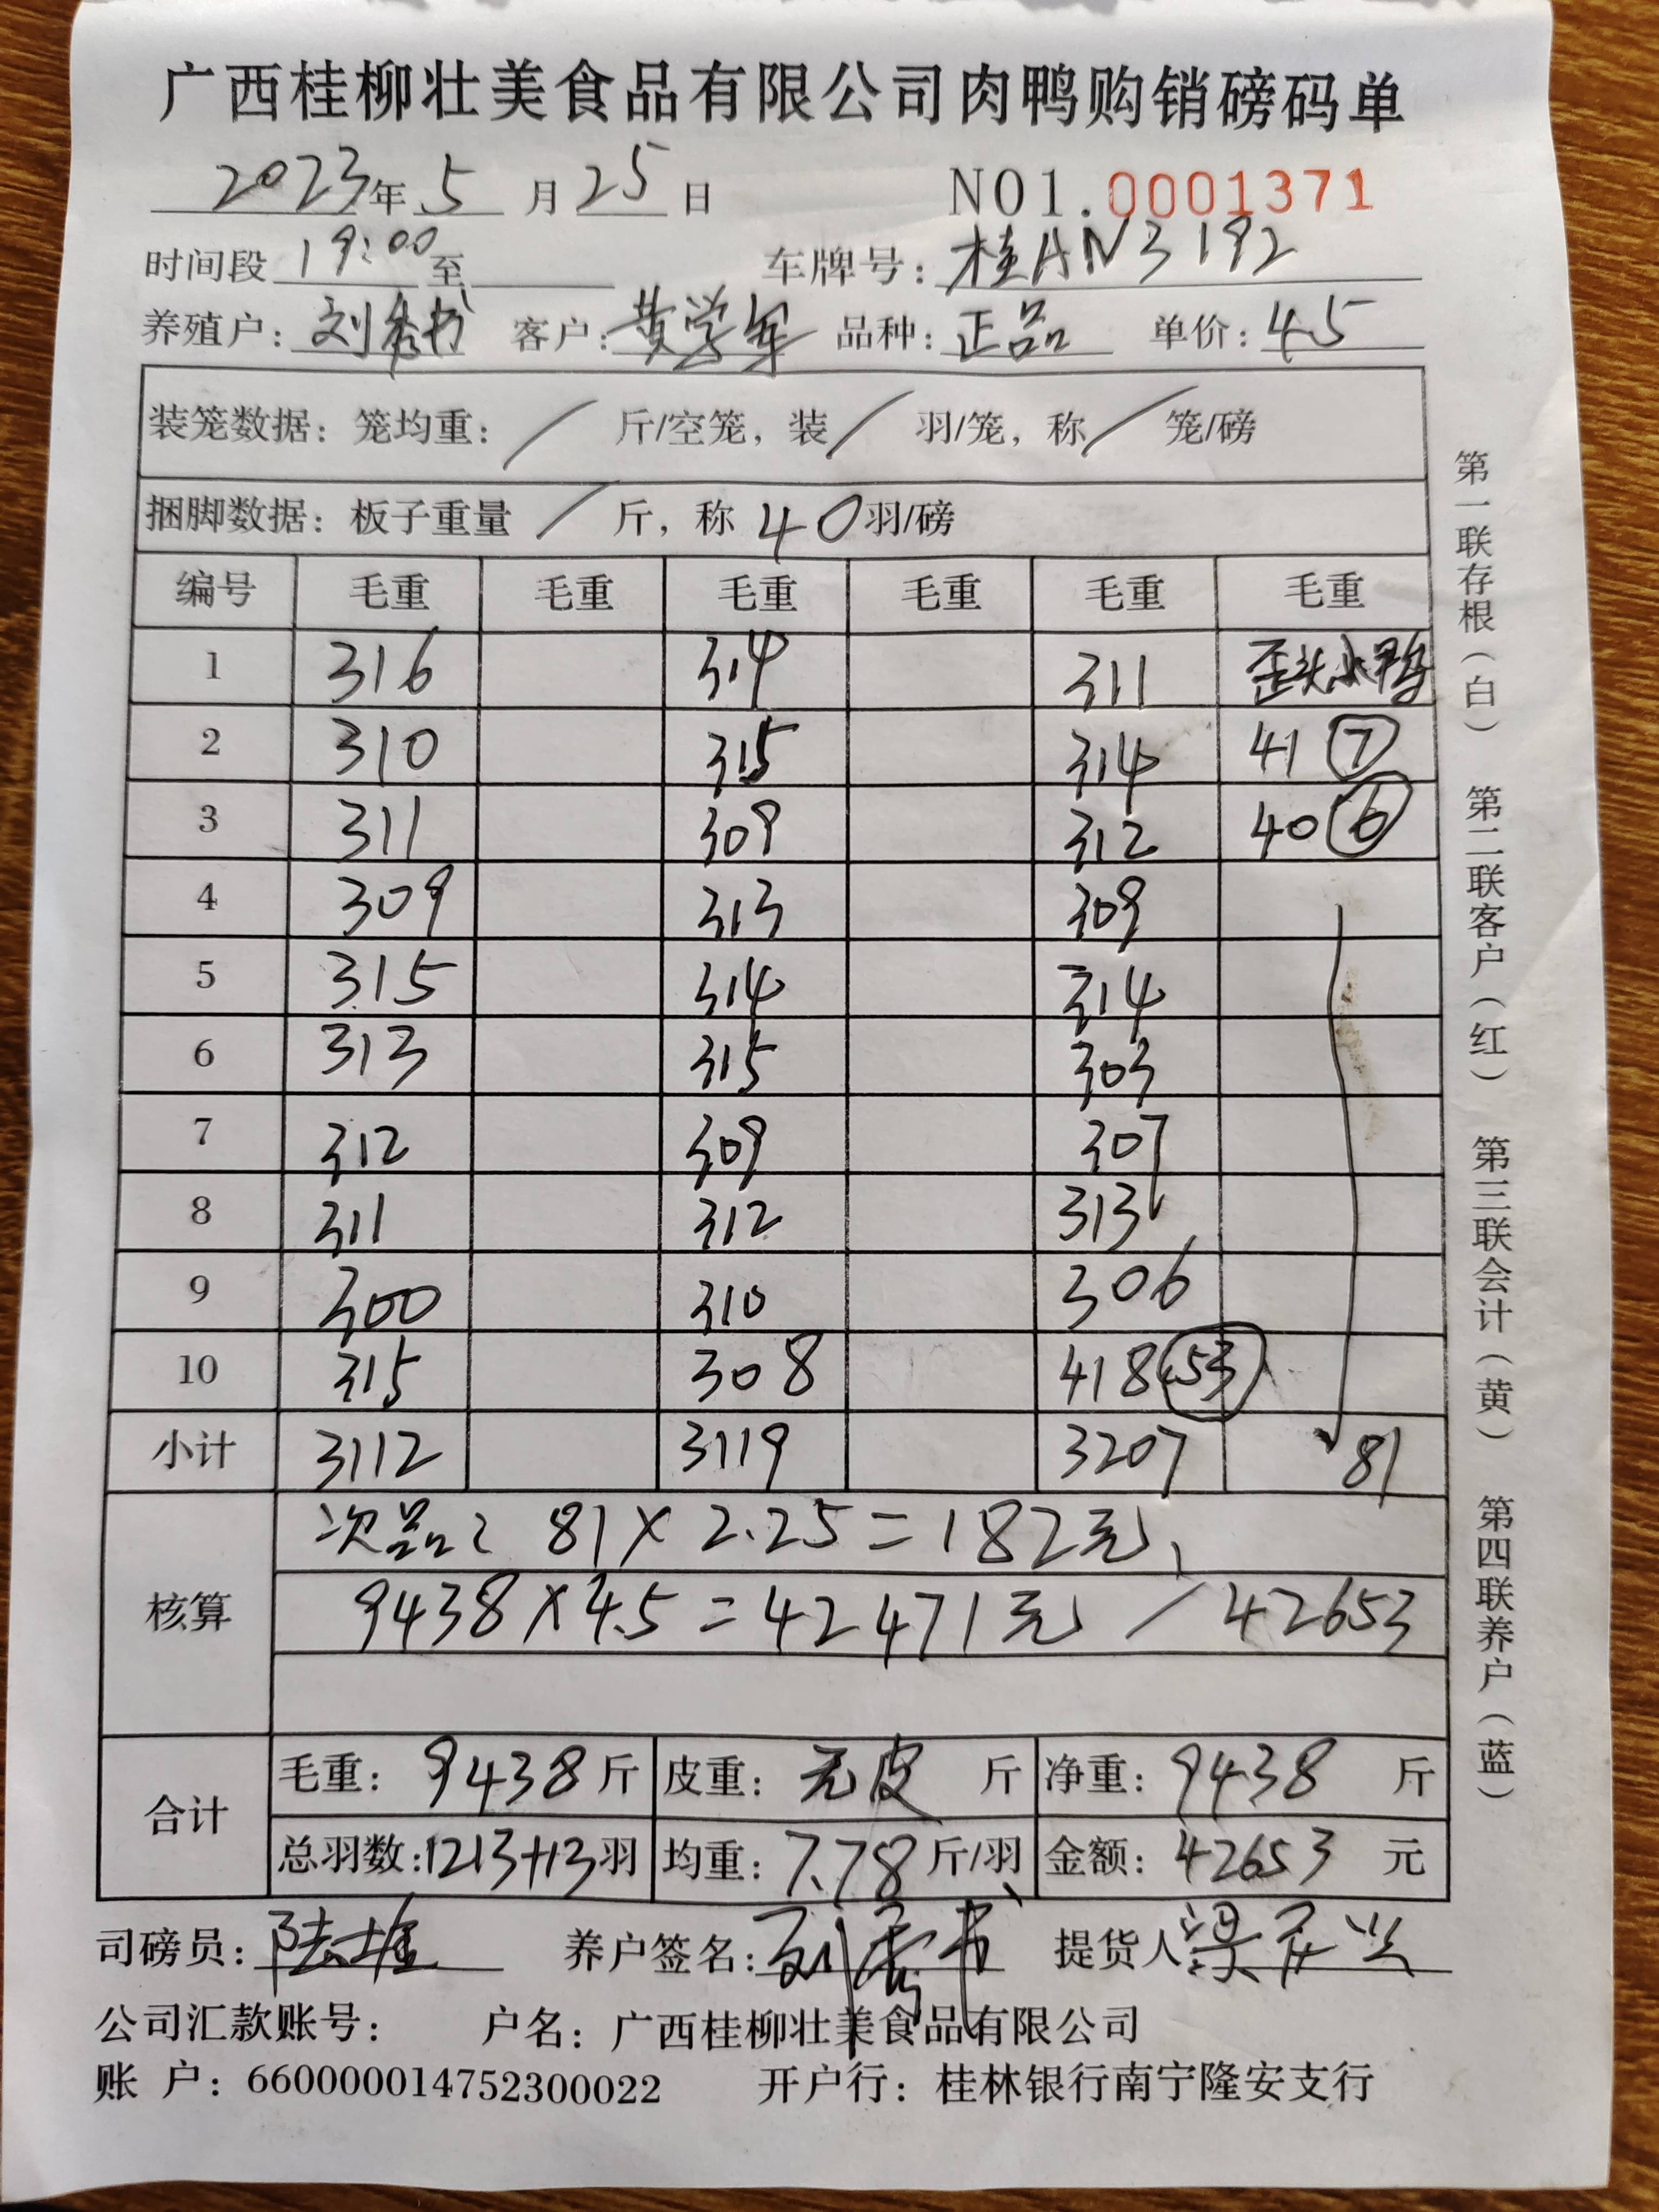 广西桂柳壮美食品有限公司肉鸭购销磅码单
2023年5月25日 NO1.0001371
时间段19:00至 车牌号:桂AN3192
养殖户:刘秀书 客户:黄学军 品种:正品 单价:4.5
装笼数据:笼均重:/斤/空笼,装/羽/笼,称/笼/磅
捆脚数据:板子重量/斤,称40羽/磅
编号 毛重 毛重 毛重 毛重 毛重 毛重
1 316 314 311 歪头小鸭
2 310 315 314 41 7
3 311 309 312 40 6
4 309 313 309
5 315 314 314
6 313 315 303
7 312 309 307
8 311 312 313
9 300 310 306
10 315 308 418 53
小计 3112 3119 3207 81
次品: 81×2.25=182元
核算 9438×4.5=42471元/42653
合计 毛重:9438斤 皮重:无皮斤 净重:9438斤
总羽数:1213+13羽 均重:7.78斤/羽 金额:42653元
司磅员:陆 养户签名:刘秀书 提货人
公司汇款账号: 户名:广西桂柳壮美食品有限公司
账 户:660000014752300022 开户行:桂林银行南宁隆安支行
第一联存根(白) 第二联客户(红) 第三联会计(黄) 第四联养户(蓝)